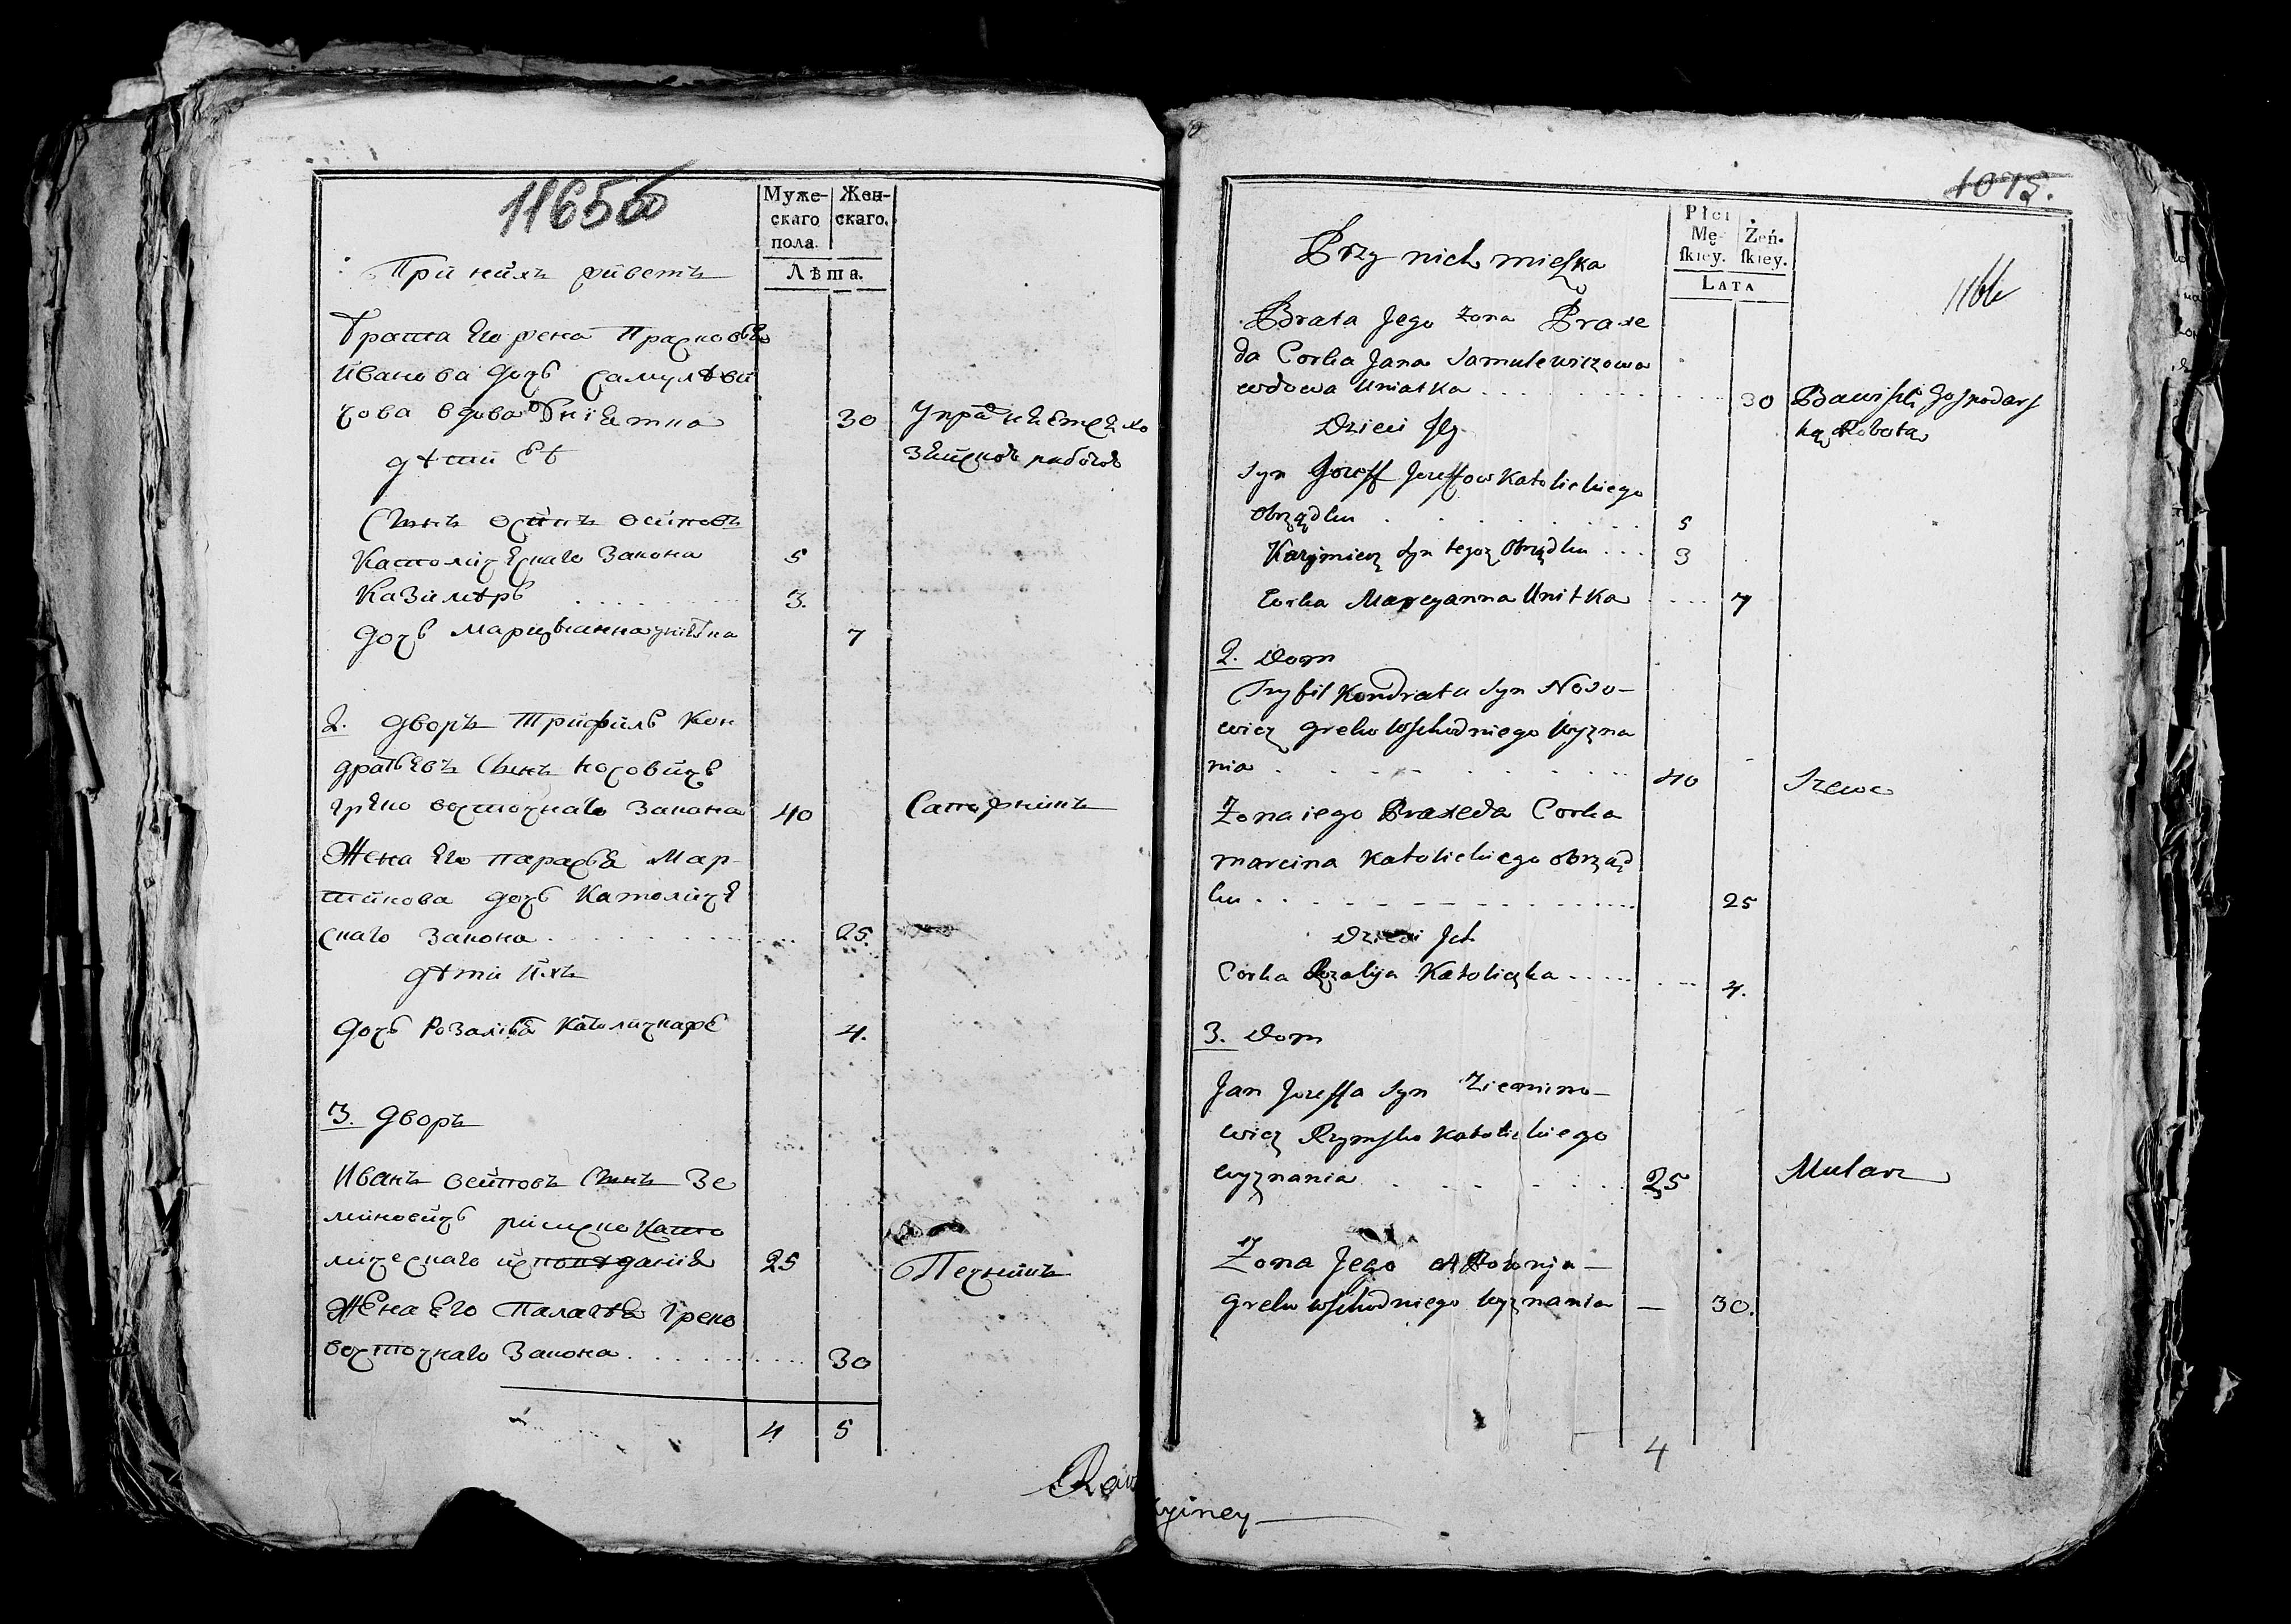 11650
Муже-
скаго
пола.
Жен-
скаго.
Лѣта.
При нихъ живетъ
Брата Его жена Прасковья
Иванова дочь Самулеви
чова вдова Уніятка 30 Упражняется хо
дѣти Её зяйскою работою
Сынъ Осипъ Осиповъ
Католическаго Закона 5
Казимѣръ 3.
дочь Марцыянна уніятка 7
2. дворъ Трифиль Кон
дратьевъ Сынъ Носовичь
греко восточнаго Закона 40 Сапожникъ
Жена Его парасья Мар-
тинова дочь Католиче
скаго Закона 25
дѣти Ихъ
дочь Розалія Католичка 4.
3. дворъ
Иванъ Осиповъ Сынъ Зе
миновичь римско като
лическаго исповѣданія 25 Печникъ
Жена Его Палагѣя греко
восточнаго Закона 30
4 5
1075.
116
Płci
Mę-
ſkiey.
Żeń-
ſkiey.
LATA
Przy nich mieſzka
Brata Jego zona Praxe
da Corka Jana Samulewiczowa
wdowa Uniatka 30 Bawi ſię Goſpodarſ
Dzieci Jey ką Robotą
Syn Jozeff Jozeffow Katolickiego
Obrządku 5
Kazimierz Syn tegoz Obrządku 3
Corka Maryanna Unitka 7
2. Dom
Tryfil Kondrata Syn Noso-
wicz Greko Wſchodniego Wyzna
nia 40 Szewc
Zona iego Praxeda Corka
Marcina Katolickiego obrząd
ku 25
Dzieci Ich
Corka Rozalija Katoliczka 4.
3. Dom
Jan Jozeffa Syn Ziemino-
wicz Rzymſko Katolickiego
wyznania 25 Mularz
Zona Jego
Greko Wſchodniego Wyznania — 30.
4